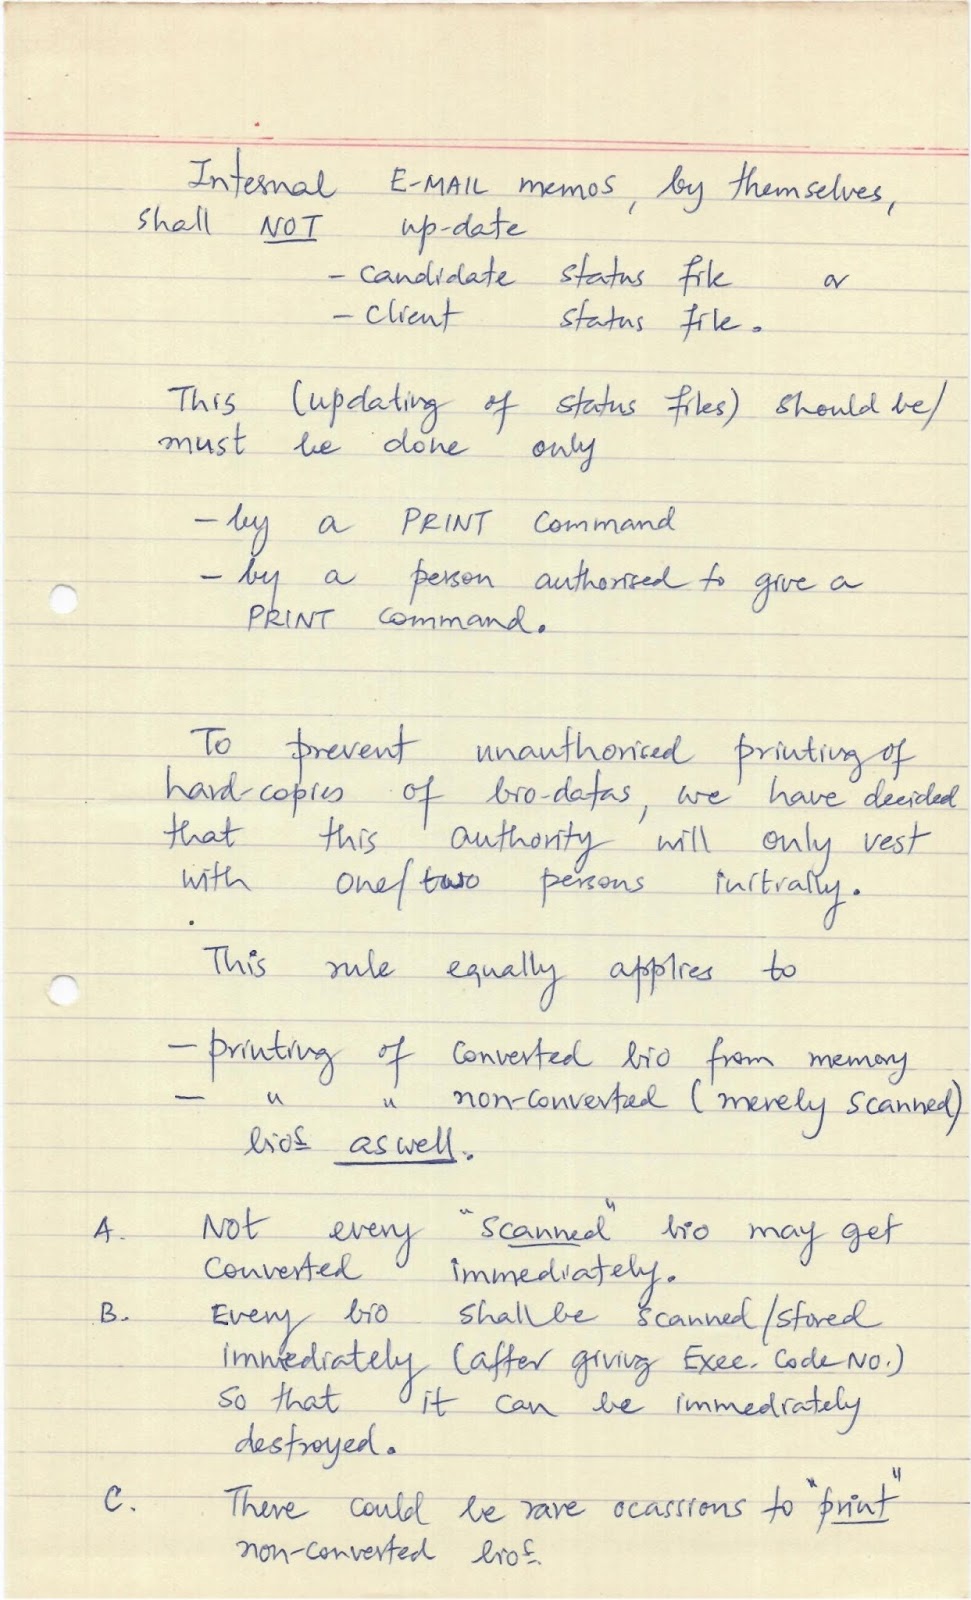 Internal E-MAIL memos, by themselves,
shall NOT up-date
- candidate status file or
- client status file.
This (updating of status files) should be/
must be done only
- by a PRINT command
- by a person authorised to give a
PRINT command.
To prevent unauthorised printing of
hard-copies of bio-datas, we have decided
that this authority will only vest
with one/two persons initially.
This rule equally applies to
- printing of converted bio from memory
- " " non-converted (merely scanned)
bios as well.
A. Not every "scanned" bio may get
converted immediately.
B. Every bio shall be scanned/stored
immediately (after giving Exec. Code No.)
so that it can be immediately
destroyed.
C. There could be rare ocassions to "print"
non-converted bios.